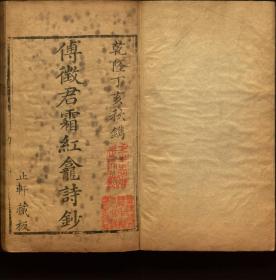 乾隆丁亥秋鐫
傅徵君霜紅龕詩鈔
止軒藏板